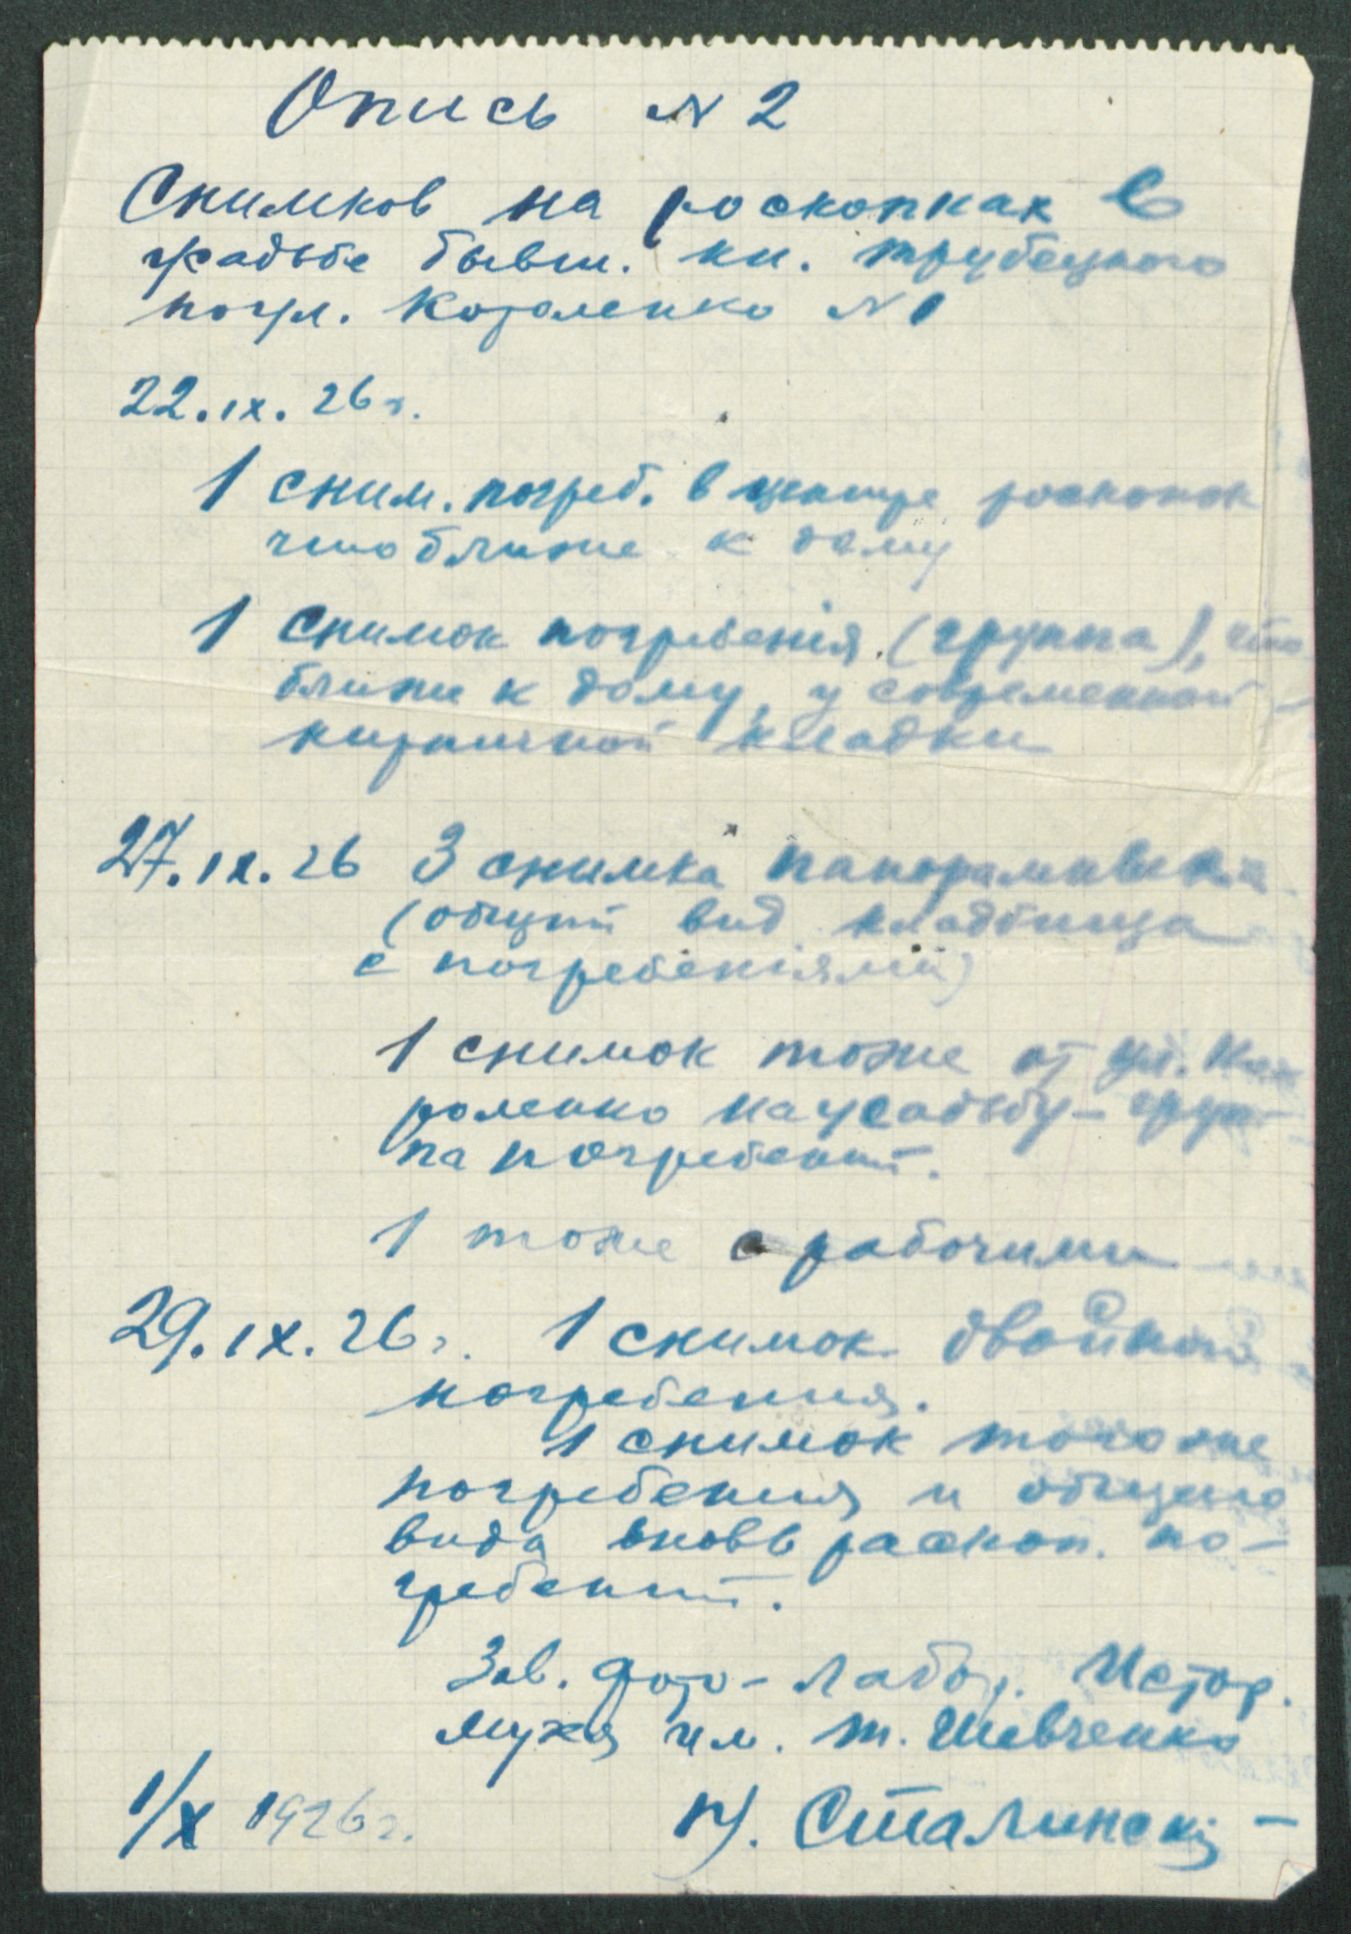 Опись № 2
Снимков на роскопках в
усадьбе бывш. кн. Трубецкого
по ул. Короленко № 1
22.IX.26 г.
1 сним. погреб. в центре роскопок
что ближе к дому
1 снимок погребенія (группа), что
ближе к дому, у современной
кирпичной кладки
27.IX.26 3 снимка панорамных
(общий вид кладбища
с погребеніями)
1 снимок тоже от ул. Ко-
роленко на усадьбу – груп-
па погребений.
1 тоже с рабочими
29.IX.26 г. 1 снимок двойного
погребения.
1 снимок того же
погребения и общего
вида вновь раскоп. по-
гребений.
Зав. фото-лабор. Истор.
музея им. Т. Шевченко
1/X 1926 г. Сталинскій